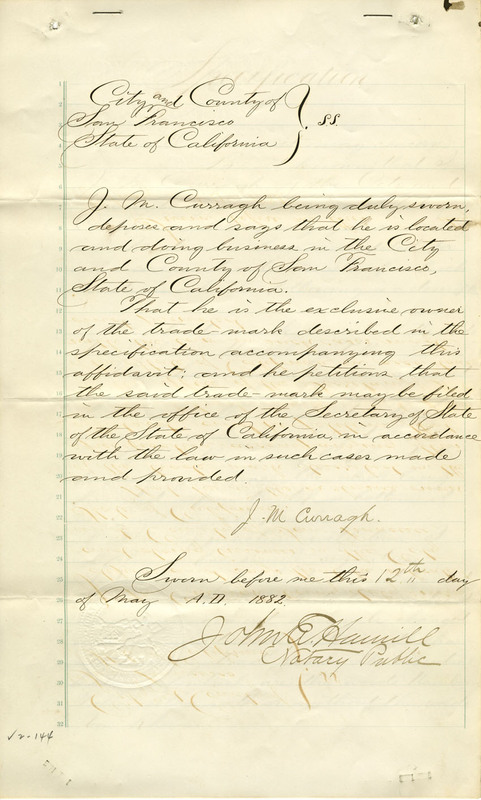 City and County of
San Francisco
State of California } ss.
J. M. Curragh being duly sworn,
deposes and says that he is located
and doing business in the City
and County of San Francisco,
State of California.
That he is the exclusive owner
of the trade-mark described in the
specification accompanying this
affidavit; and he petitions that
the said trade-mark may be filed
in the office of the Secretary of State
of the State of California, in accordance
with the law in such cases made
and provided.
J. M Curragh.
Sworn before me this 12th day
of May A.D. 1882.
John E. Hamill
Notary Public
√2-144